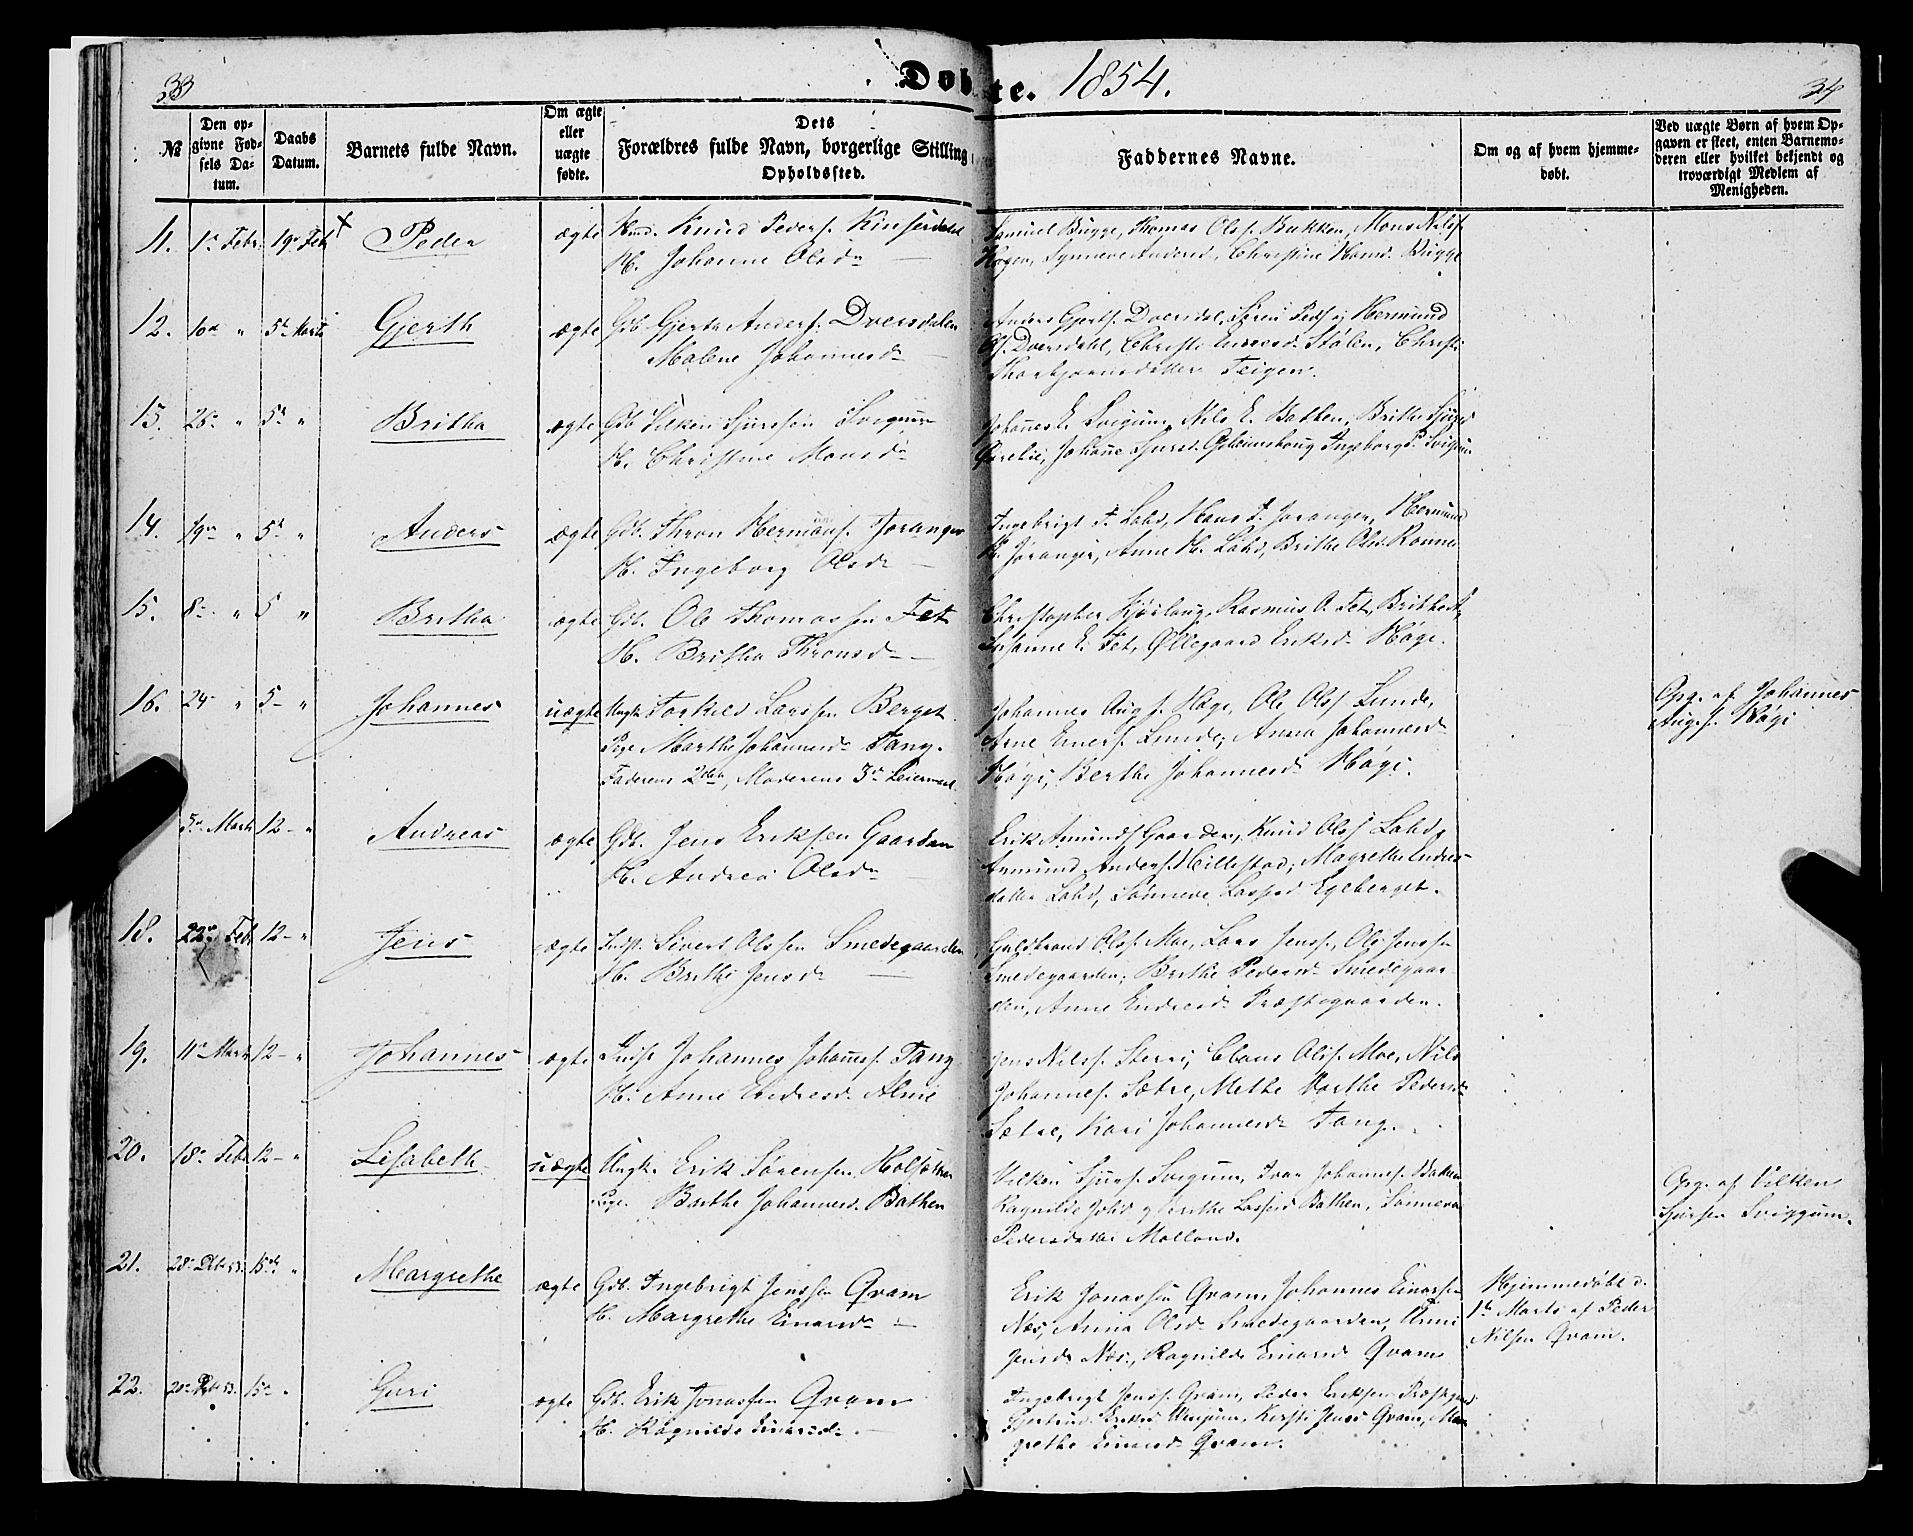 33
Døbte. 1854.
34
№
Den opgivne Fødsels Datum.
Daabs Datum.
Barnets fulde Navn.
Om ægte eller uægte fødte.
Dets Forældres fulde Navn, borgerlige Stilling
Opholdssted.
Faddernes Navne.
Om og af hvem hjemmedøbt.
Ved uægte Børn af hvem Opgaven er skeet, enten Barnemoderen eller hvilket bekjendt og troværdigt Medlem af Menigheden.
11. 1 Febr. 19 Feb Peder ægte Knud Peders. Kinserdal
H. Johanne Olsd
Samuel Bugge, Thomas Ols. Bakken, Mons Nilss.
Høgen, Synneve Andersd, Christine Bugge
12. 10 " 5 Marts Gjerth ægte Gdb. Gjerth Anders. Dversdalen
Malene Johannesd
Anders Gjerts. Dversdal, Hermund
Ols. Dversdahl, Christi Stølen, Christi
Thorbjørnsdatter Teigen.
13. 26 " 5 " Britha ægte Gdb Vilken Sjursen Svigum
H. Christine Monsd
Johannes E. Svigum, Nils E. Bathen, Brithe
Johanne Sjursd. Ingeborg Svigum
14. 19 " 5 " Anders ægte Gdb. Thron Hermans. Joranger
H. Ingeborg Olsd
Ingebrigt T. Lohd, Hans T. Joranger, Hermund
H. Joranger, Anne H. Lohd, Brithe Olsd. Rønnei
15. 8 " 5 " Britha ægte Gdb. Ole Thomassen Fet
H. Britha Thronsd
Christopher Kjørlaug, Rasmus O. Fet, Brithe
Johanne E. Fet, Øllegaard Eriksd Høge.
16. 24 " 5 " Johannes uægte Ungk Torkild Larssen Berget
Pige Marthe Johannesd Tang.
Faderens 2det, Moderens 3 Leiermaal
Johannes Augs. Høge, Ole Olss Lunde,
Arne Einers. Lunde, Anna Johannesd
Høgi, Berthe Johannesd Høgi.
Opg. af Johannes
Augs. Høgi
5 Marts 12 " Andreas ægte Gdb. Jens Eriksen Gaarden
H. Andrea Olsd
Erik Amunds Gaarden, Knud Olss Lohd,
Amund Anders. Hillestad, Magrethe Endres
datter Lohd, Sønneve Lassesd Egeberget.
18. 22 Feb 12 " Jens ægte Indst. Sivert Olssen Smedegaarden
H. Brithe Jensd
Guldbrand Ols. Moe, Lars Jenss., Ole Jenssen
Smedegaarden, Brithe Pedersd Smedegaar
den, Anne Endresd Præstegaarden.
19. 11 Marts 12 " Johannes ægte Indst Johannes Johanns. Tang
H. Anne Endresd. Alme
Jens Nilss. Sterri, Claus Olss. Moe, Nils
Johannes. Sætre, Methe Marthe Pedersd
Sætre, Kari Johannesd Tang.
20. 18 Feb 12 " Lisabeth uægte Ungk. Erik Sørensen
Pige. Brithe Johannesd. Bathen
Vilken Sjurs. Svigum, Ivar Johannes. Bathen
Ragnilde Lassesd Bathen, Sønneva
Pedersdatter Molland.
Opg. af Vilken
Sjursen Sviggum.
21. 28 53. 15 " Margrethe ægte Gdb. Ingebrigt Jenssen Qvam
H. Margrethe Einarsd
Erik Jonassen Qvam, Johannes Einarsen
Næs, Anna Olsd Smedegaarden, Anne
Jensd Næs, Ragnilde Einarsd Qvam
Hjemmedøbt d.
1 Marts af Peder
Nilsen Qvam.
22. 20 53. 15 " Guri ægte Gdb. Erik Jonassen Qvam
H. Ragnilde Einarsd
Ingebrigt Jenss. Qvam, Peder Eriksen
Gjertrud Eriksd Kirsti Jensd Qvam, Mar
grethe Einarsd Qvam.